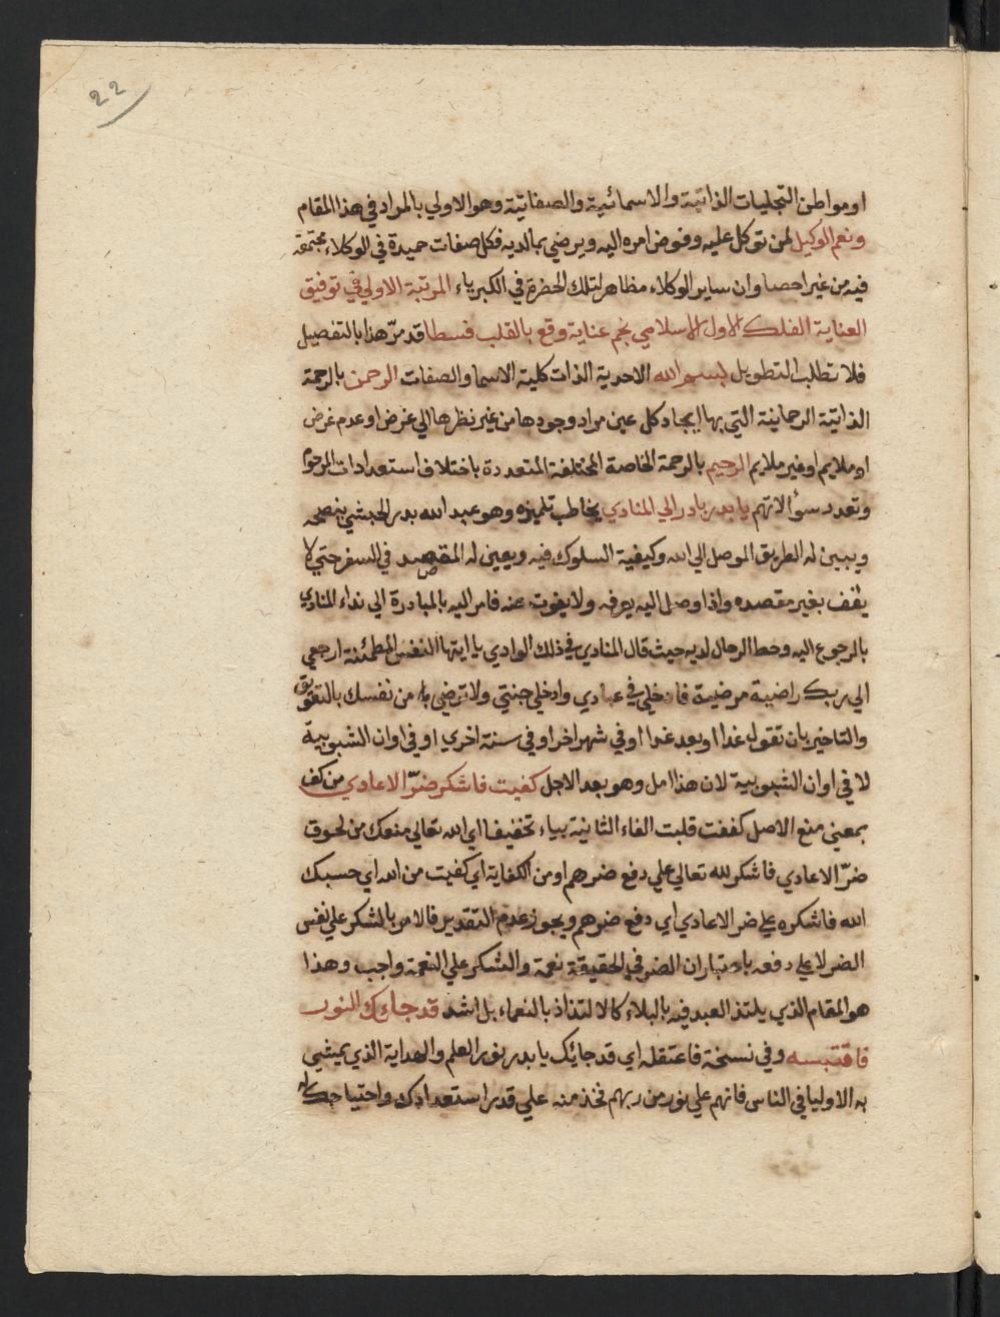 22
او مواطن التجليات الذاتية والاسمائية والصفاتية وهو الاولي بالمراد في هذا المقام
ونعم الوكيل لمن توكل عليه وفوض امره اليه ويرضي بمالديه فكل صفات حميدة في الوكلاء مجتمعة
فيه من غير احصا وان ساير الوكلاء مظاهر لتلك الحضرة في الكبرياء المرتبة الاولي في توفيق
العناية الفلك الاول الاسلامي نجم عناية وقع بالقلب فسطا قد مرّ هذا بالتفصيل
فلا تطلب التطويل بسم الله الاحدية الذات كلية الاسما والصفات الرحمن بالرحمة
الذاتيّة الرحمانية التي بها ايجاد كل عين مراد وجودها من غير نظرها الي غرض او عدم غرض
او ملايم او غير ملايم الرحيم بالرحمة الخاصة المختلفة المتعددة باختلاف استعدادات المرحوم
وتعدد سؤالاتهم يا بدر بادر الي المنادي يخاطب تلميزه وهو عبد الله بدر الحبشي ينصحه
ويبين له الطريق الموصل الي الله وكيفية السلوك فيه ويعين له المقصد في السفر حتي لا
يقف بغير مقصده واذا وصل اليه يعرفه ولا يفوت عنه فامر اليه بالمبادرة الي نداء المنادي
بالرجوع اليه وحط الرحال لديه حيث قال المنادي في ذلك الوادي يا ايتها النفس المطمئنة ارجعي
الي ربك راضية مرضية فادخلي في عبادي وادخلي جنتي ولا ترضي من نفسك بالتعويق
والتاخير بان تقول غدا او بعد غدا او في شهر اخر او في سنة اخري او في اوان الشيوبية
لا في اوان الشبوبية لان هذا امل وهو بعد الاجل كفيت فاشكر ضرّ الاعادي من كف
بمعني منع الاصل كففت قلبت الفاء الثانية بياء تخفيفا اي الله تعالي منعك من لحوق
ضرّ الاعادي فاشكر لله تعالي علي دفع ضرهم او من الكفاية اي كفيت من الله اي حسبك
الله فاشكره علي ضر الاعادي اي دفع ضرهم ويجوز عدم التقدير فالامر بالشكر علي نفس
الضر لا علي دفعه باعتبار ان الضر في الحقيقة نعمة والشكر علي النعمة واجب وهذا
هو المقام الذي يلتذ العبد فيه بالبلاء كالالتذاذ بالنعماء بل اشد قد جائك النور
فاقتبسه وفي نسخة فاعتقله اي قد جائك يا بدر نور العلم والهداية الذي يمشي
به الاوليا في الناس فانهم علي نور من ربهم فخذ منه علي قدر استعدادك واحتياجك